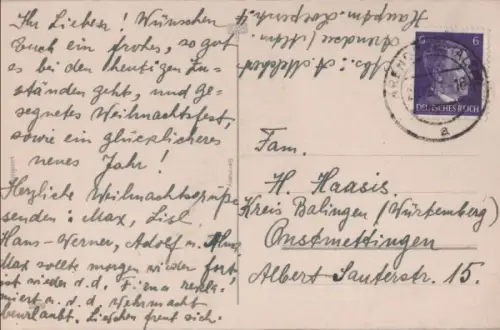 Ihr Lieben! Wünschen
Euch ein frohes, so gut
es bei den heutigen Zu-
ständen geht, und ge-
segnetes Weihnachtsfest,
sowie ein glücklicheres
neues Jahr!
Herzliche Weihnachtsgrüße
senden: Max, Lisl.
Hans-Werner, Adolf u.
Max sollte morgen wieder fort,
ist wieder d. d. Firma rekla-
miert u. d. d. Wehrmacht
beurlaubt. Lieschen freut sich.
Abs.:
6 6
DEUTSCHES REICH
a
Fam.
H. Haasis.
Kreis Balingen (Württemberg)
Onstmettingen
Albert Sauterstr. 15.